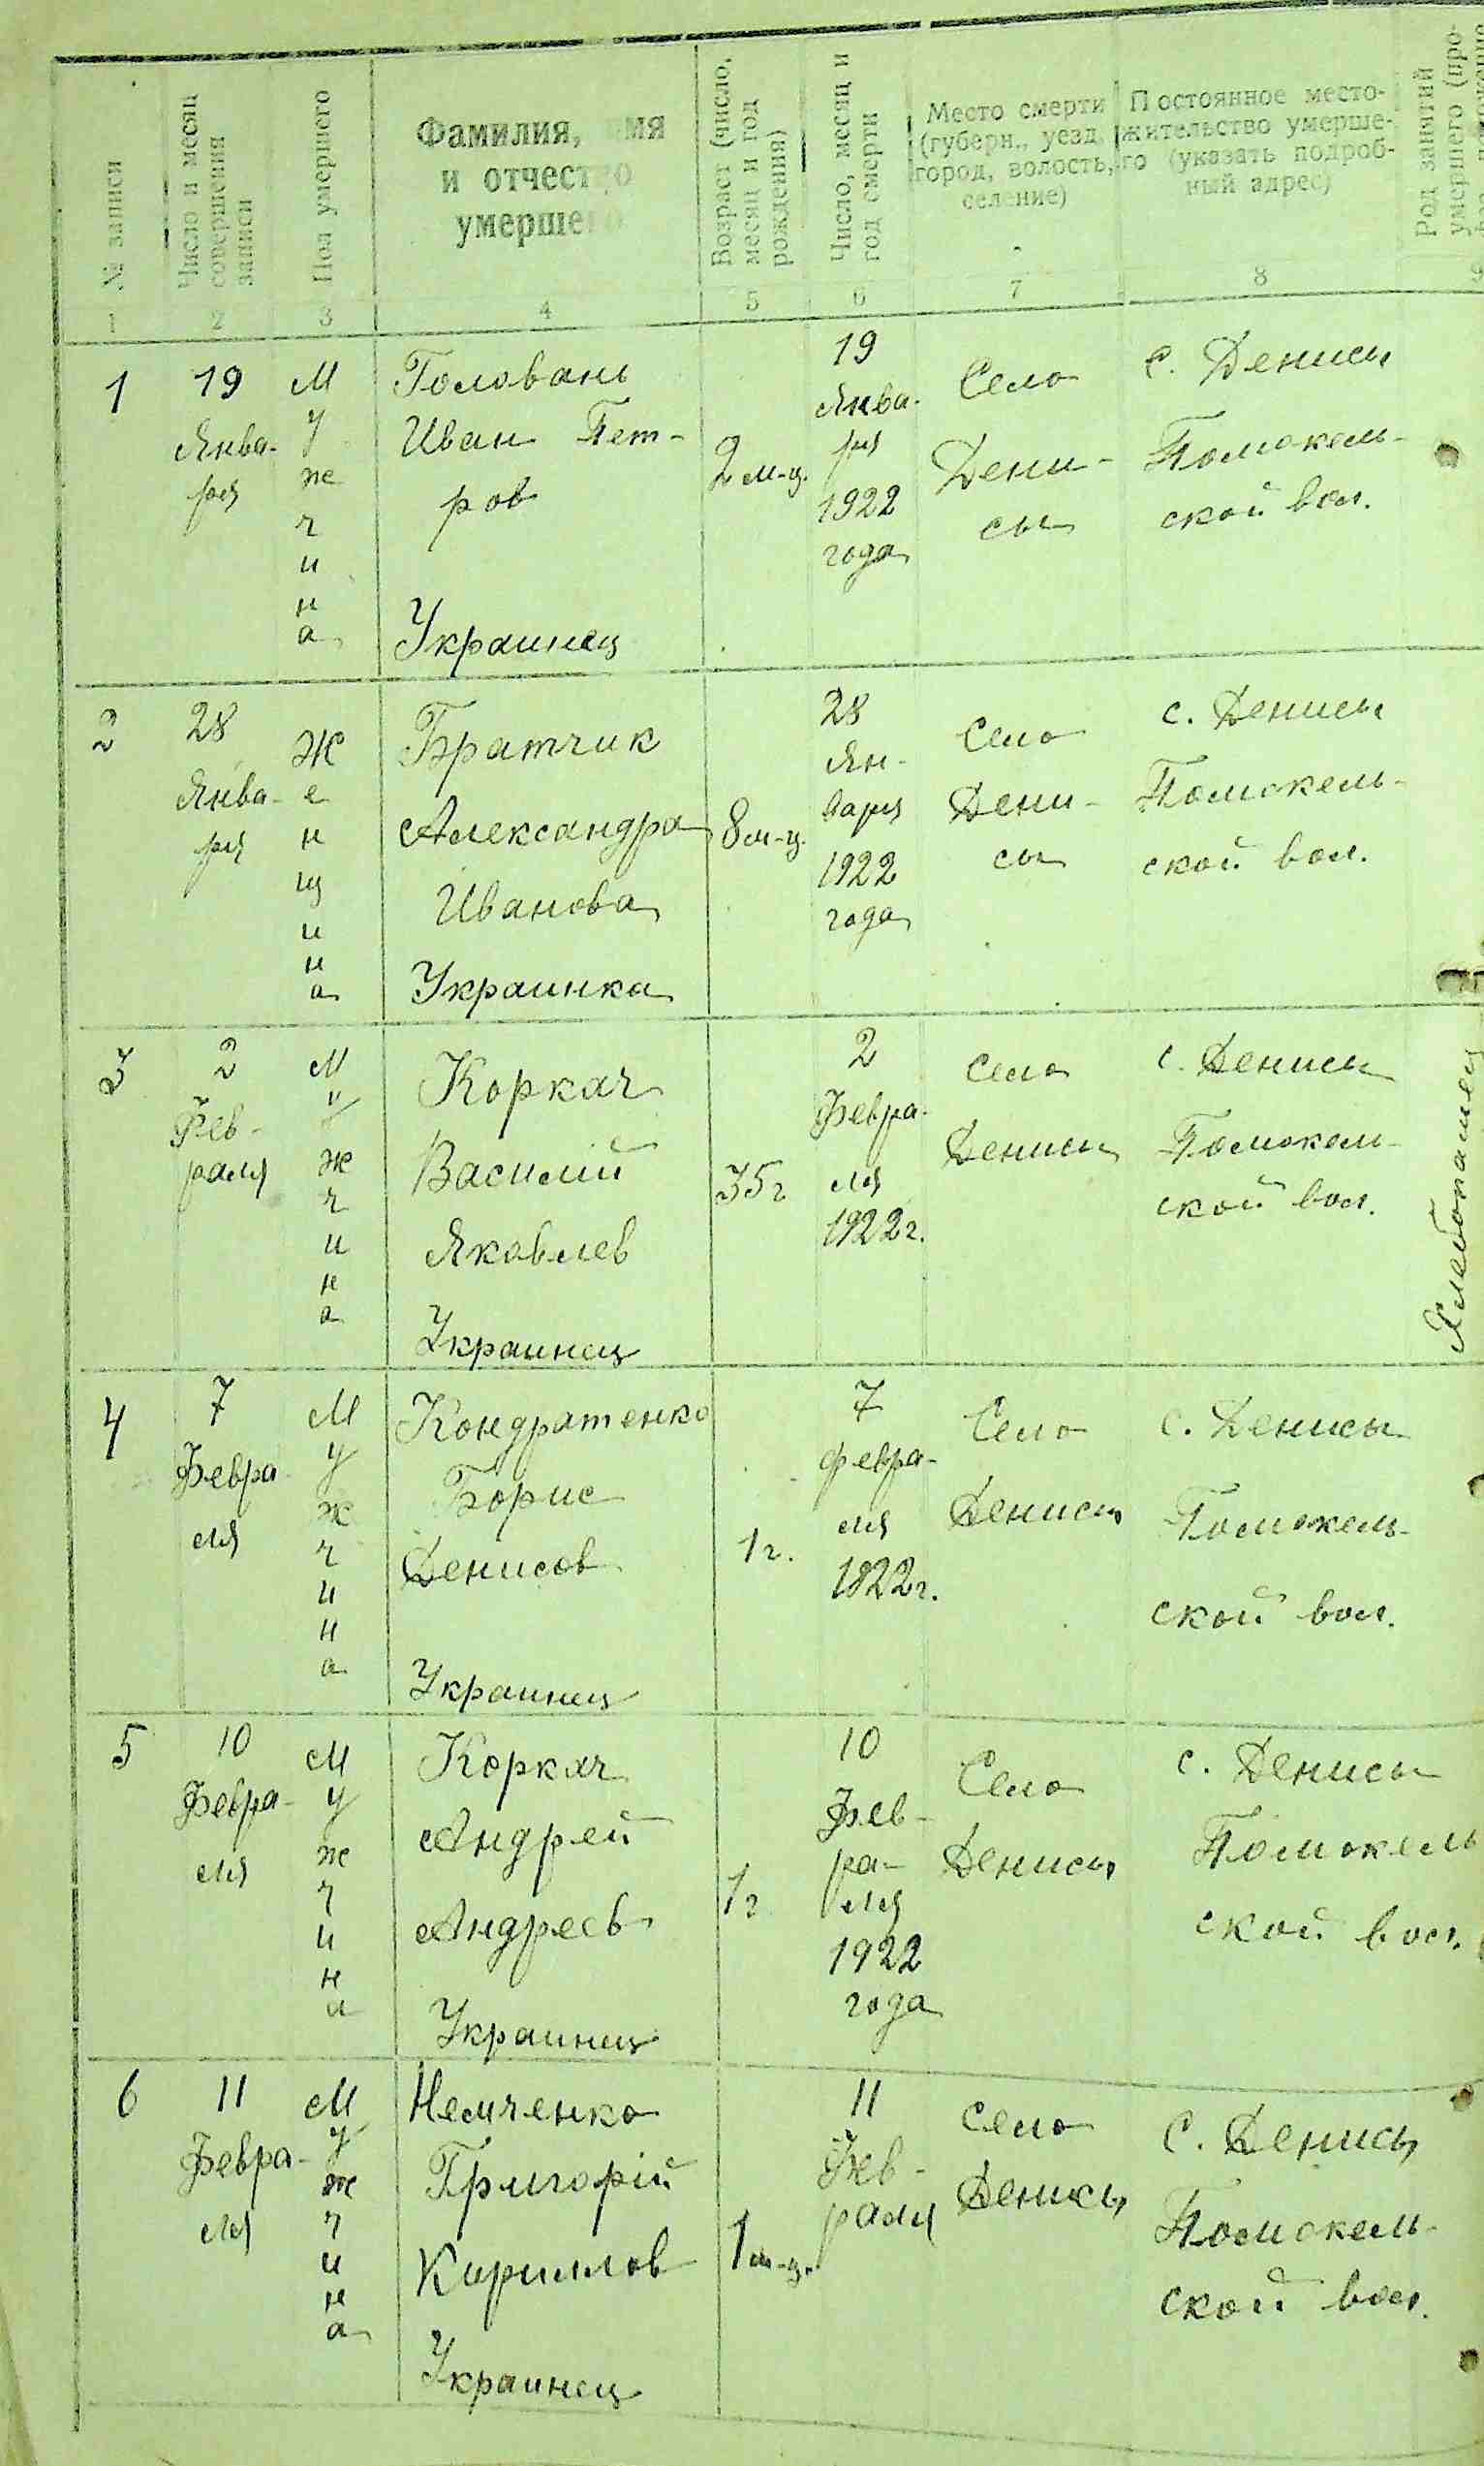 № записи
Число и месяц
совершения
записи
Пол умершего
Фамилия, имя
и отчество
умершего
Возраст (число,
месяц и год
рождения)
Число, месяц и
год смерти
Место смерти
(губерн., уезд,
город, волость,
селение)
Постоянное место-
жительство умерше-
го (указать подроб-
ный адрес)
Род занятий
умершего (про-
1 2 3 4 5 6 7 8 9
1
19
Янва-
ря
Мужчина
Головань
Иван Пет-
ров
Украинец
2 м-ц.
19
Янва-
ря
1922
года
Село
Дени-
сы
с. Денисы
Помокель-
ской вол.
2
28
Янва-
ря
Женщина
Братчик
Александра
Иванова
Украинка
8 м-ц.
28
Ян-
варя
1922
года
Село
Дени-
сы
с. Денисы
Помокель-
ской вол.
3
2
Фев-
раля
Мужчина
Коркач
Василий
Яковлев
Украинец
35 г
2
Февра-
ля
1922 г.
Село
Денисы
с. Денисы
Помокель-
ской вол.
Хлебопашец
4
7
Февра
ля
Мужчина
Кондратенко
Борис
Денисов
Украинец
1 г.
7
Февра-
ля
1822 г.
Село
Денисы
с. Денисы
Помокель-
ской вол.
5
10
Февра-
ля
Мужчина
Коркач
Андрей
Андреев
Украинец
1 г
10
Фев-
ра-
ля
1922
года
Село
Денисы
с. Денисы
Помокель
ской вол.
6
11
Февра-
ля
Мужчина
Немченко
Григорій
Кириллов
Украинец
1 м-ц.
11
Фев-
раля
Село
Денисы
С. Денисы
Помокель-
ской вол.